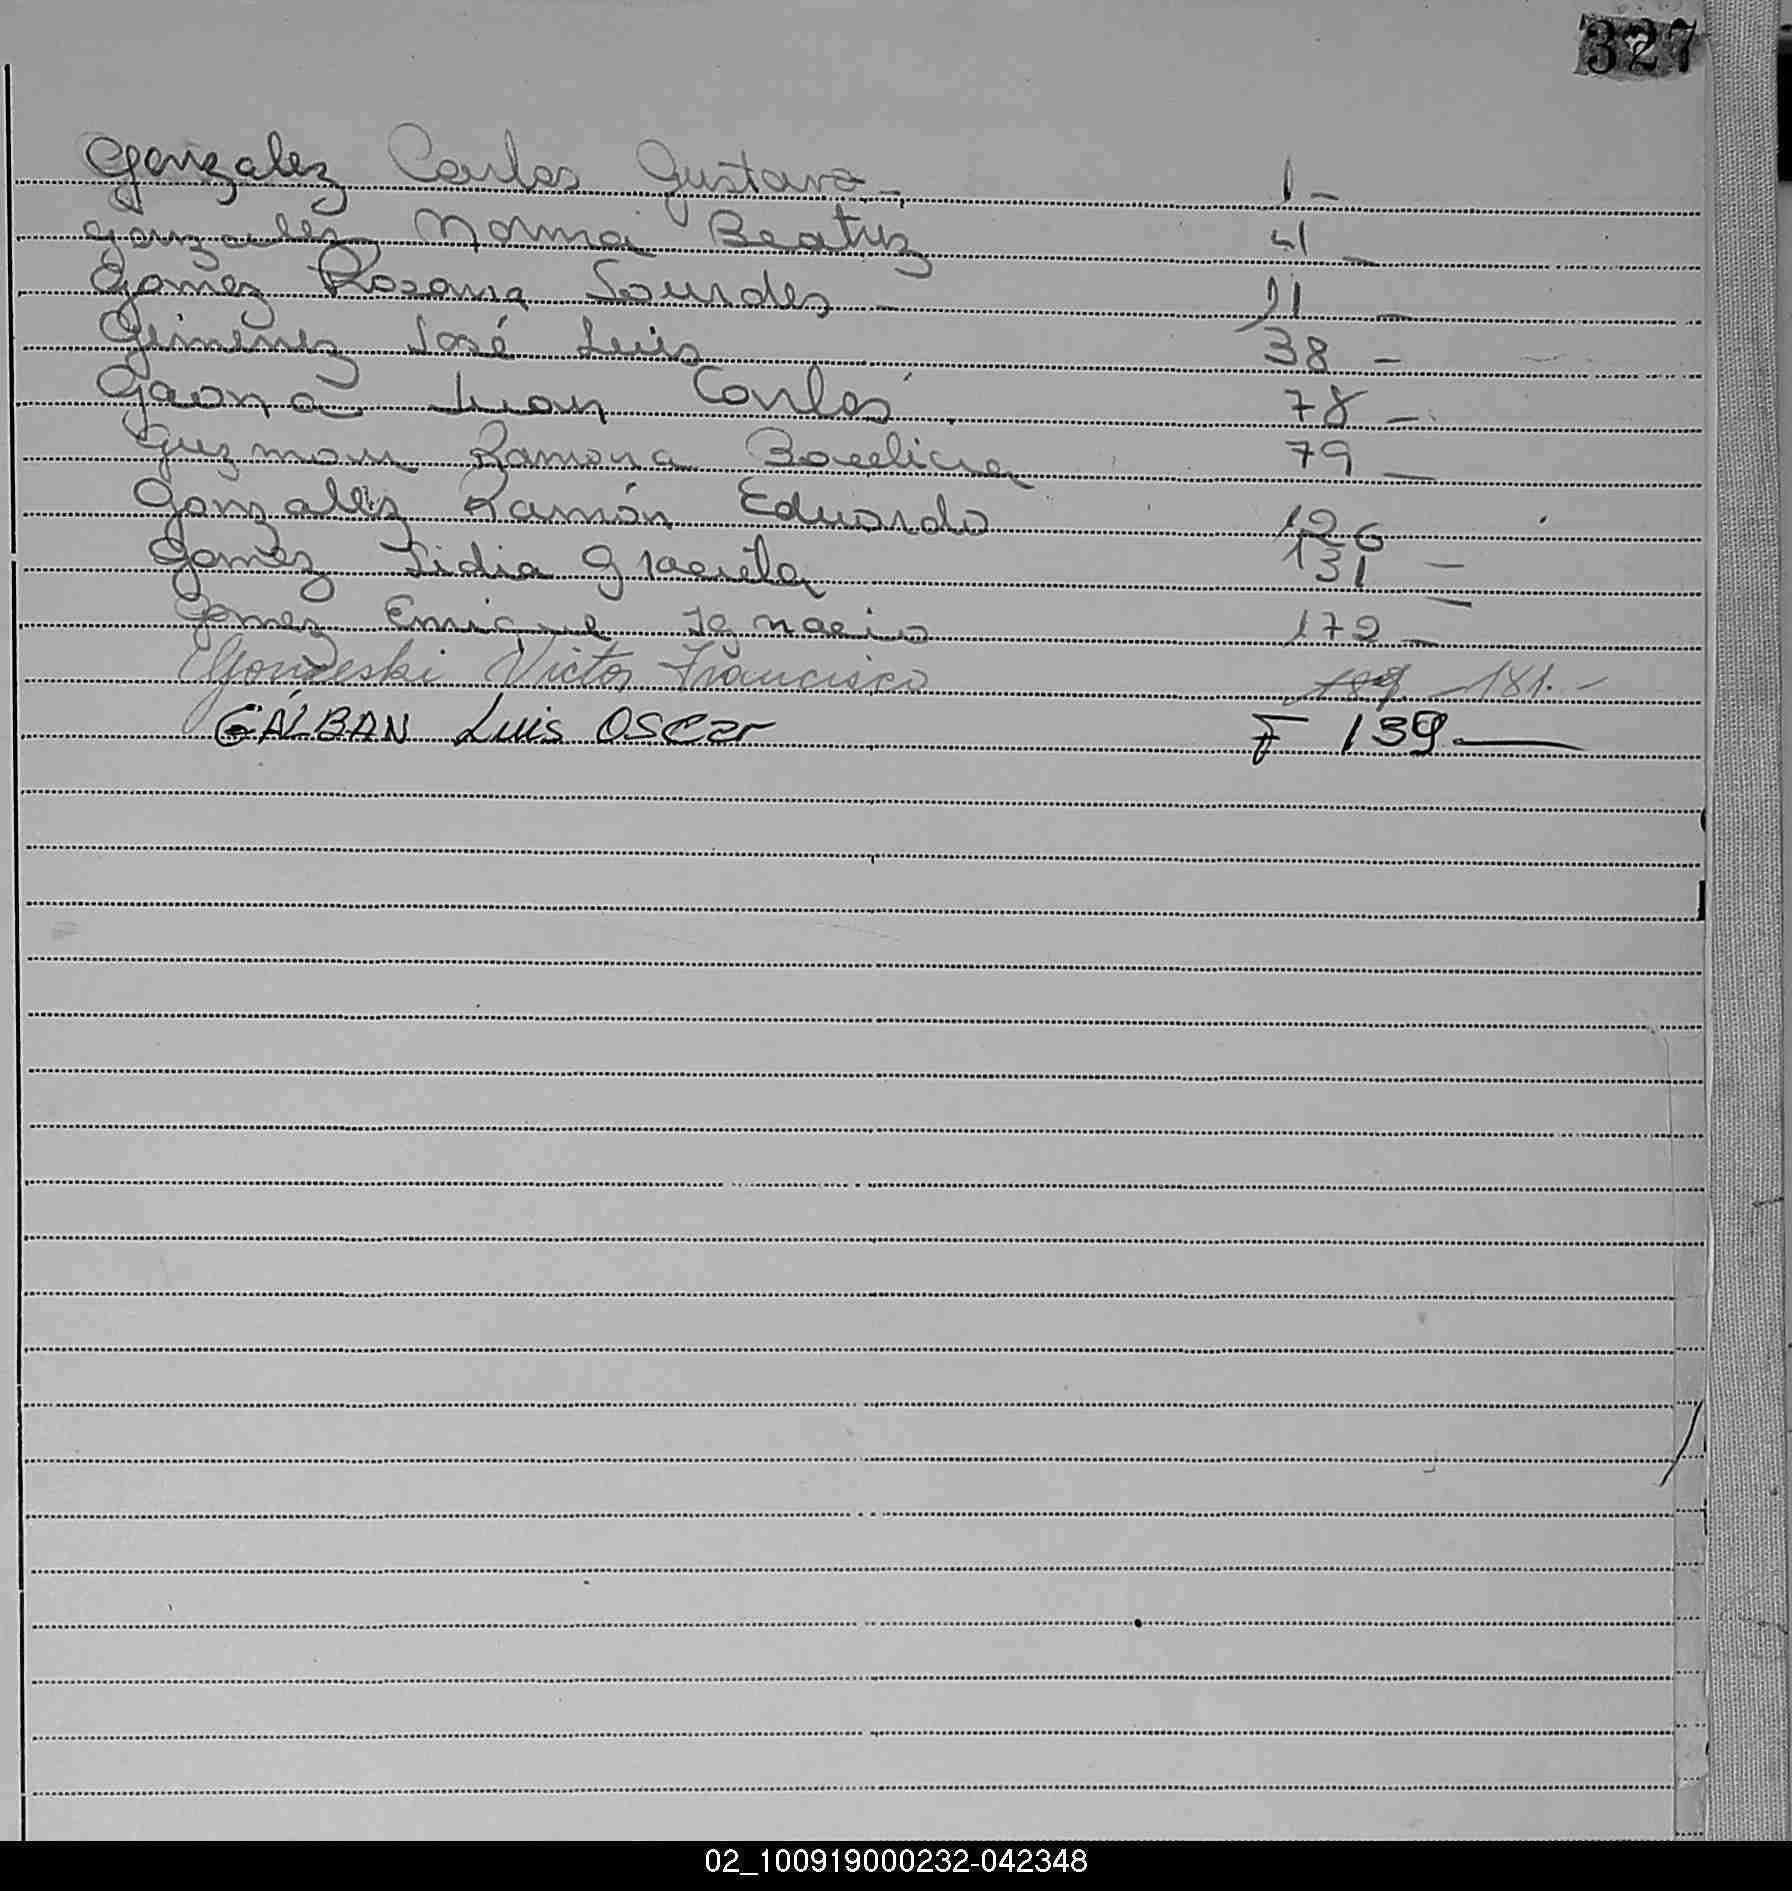 327
Gonzalez Carlos Gustavo - 1 -
Gonzalez Norma Beatriz 41 -
Gomez Rosana Lourdes - 11 -
Gimenez José Luis 38 -
Gaona Juan Carlos 78 -
Guzman Ramona 79 -
Gonzalez Ramón Eduardo 126 -
Gomez Lidia Graciela 131 -
Gomez Enrique Ignacio 172 -
Victor Francisco 181. -
GÁLBAN Luis Oscar F 139 -
02_100919000232-042348